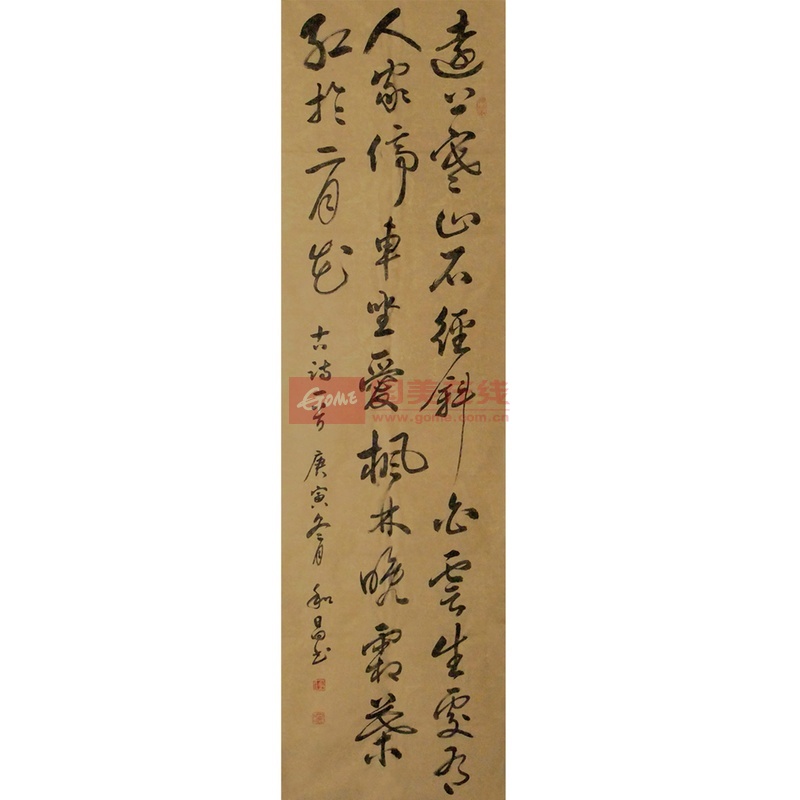 遠上寒山石徑斜白雲生處有
人家停車坐愛楓林晚霜葉
紅於二月花
古詩一首 庚寅冬月 和昌书
GOME 国美在线
www.gome.com.cn